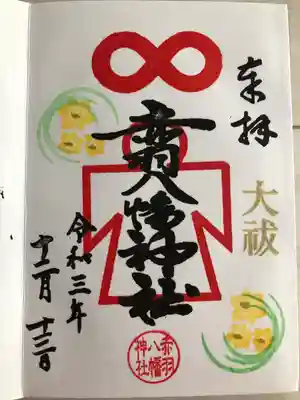 奉拝
大祓
赤羽八幡神社
赤羽
八幡
神社
令和三年
十二月十三日